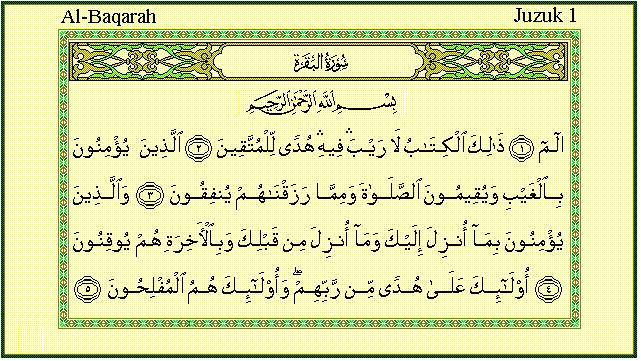 Al-Baqarah
Juzuk 1
سُورَةُ الْبَقَرَةِ
بِسْمِ اللَّهِ الرَّحْمَٰنِ الرَّحِيمِ
الٓمٓ ١ ذَٰلِكَ ٱلْكِتَـٰبُ لَا رَيْبَ ۛ فِيهِ ۛ هُدًى لِّلْمُتَّقِينَ ٢ ٱلَّذِينَ يُؤْمِنُونَ
بِٱلْغَيْبِ وَيُقِيمُونَ ٱلصَّلَوٰةَ وَمِمَّا رَزَقْنَـٰهُمْ يُنفِقُونَ ٣ وَٱلَّذِينَ
يُؤْمِنُونَ بِمَآ أُنزِلَ إِلَيْكَ وَمَآ أُنزِلَ مِن قَبْلِكَ وَبِٱلْأَخِرَةِ هُمْ يُوقِنُونَ
٤ أُو۟لَـٰٓئِكَ عَلَىٰ هُدًى مِّن رَّبِّهِمْ ۖ وَأُو۟لَـٰٓئِكَ هُمُ ٱلْمُفْلِحُونَ ٥